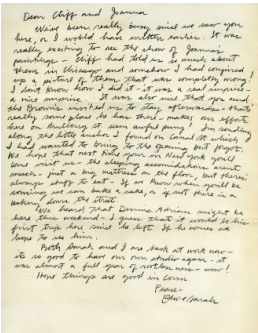 Dear Cliff and Joanna
We've been really busy since we saw you
here, or I would have written earlier. It was
really exciting to see the show of Joanna's
paintings - Cliff had told us so much about
them in Chicago and somehow I had conjured
up a picture of them that was completely wrong!
I don't know how I did it - it was a real surprise -
a nice surprise. It was also nice that you and
the Browns invited us to stay afterwards - that's
really some place he has there - makes our efforts
here on building it seem awful puny. I'm sending
along the little anchor I found on Canal St which
I had wanted to bring to the opening but forgot.
We hope that next time you're in New York you'd
come visit us - the sleeping accomodations aren't
much - just a big mattress on the floor, but there's
always stuff to eat - If we know when you'll be
coming we can bake a cake, or if not there is a
bakery down the street
We heard that Dennis Adrian might be
here this weekend - I guess that would be his
first trip here since he left. If he comes we
hope to see him.
Both Sarah and I are back at work now -
its so good to have our own studio again - it
was almost a full year of rootlessness - wow!
Hope things are good in Conn
Peace -
Edw & Sarah